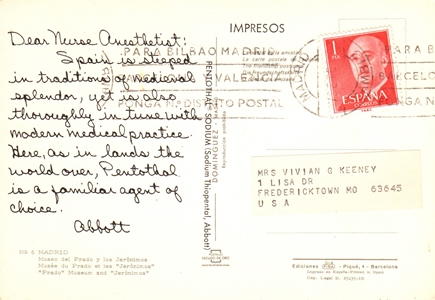 Dear Nurse Anesthetist:
Spain is steeped
in traditions of medieval
splendor, yet is also
thoroughly in tune with
modern medical practice.
Here, as in lands the
world over, Pentothal
is a familiar agent of
choice.
Abbott
Nº 6 MADRID
Museo del Prado y los Jerónimos
Musée du Prado et les "Jerónimos"
"Prado" Museum and "Jerónimos"
PENTOTHAL SODIUM (Sodium thiopental, Abbott)
DOMINGUEZ - MADRID
IMPRESOS
PARA BILBAO MADRID
VALENCIA
PONGA Nº DISTRITO POSTAL
MADRID
1
PTA
ESPAÑA
CORREOS
PARA B
BARCELO
MRS VIVIAN G KEENEY
1 LISA DR
FREDERICKTOWN MO 63645
U S A
Ediciones - Piqué, 1 - Barcelona